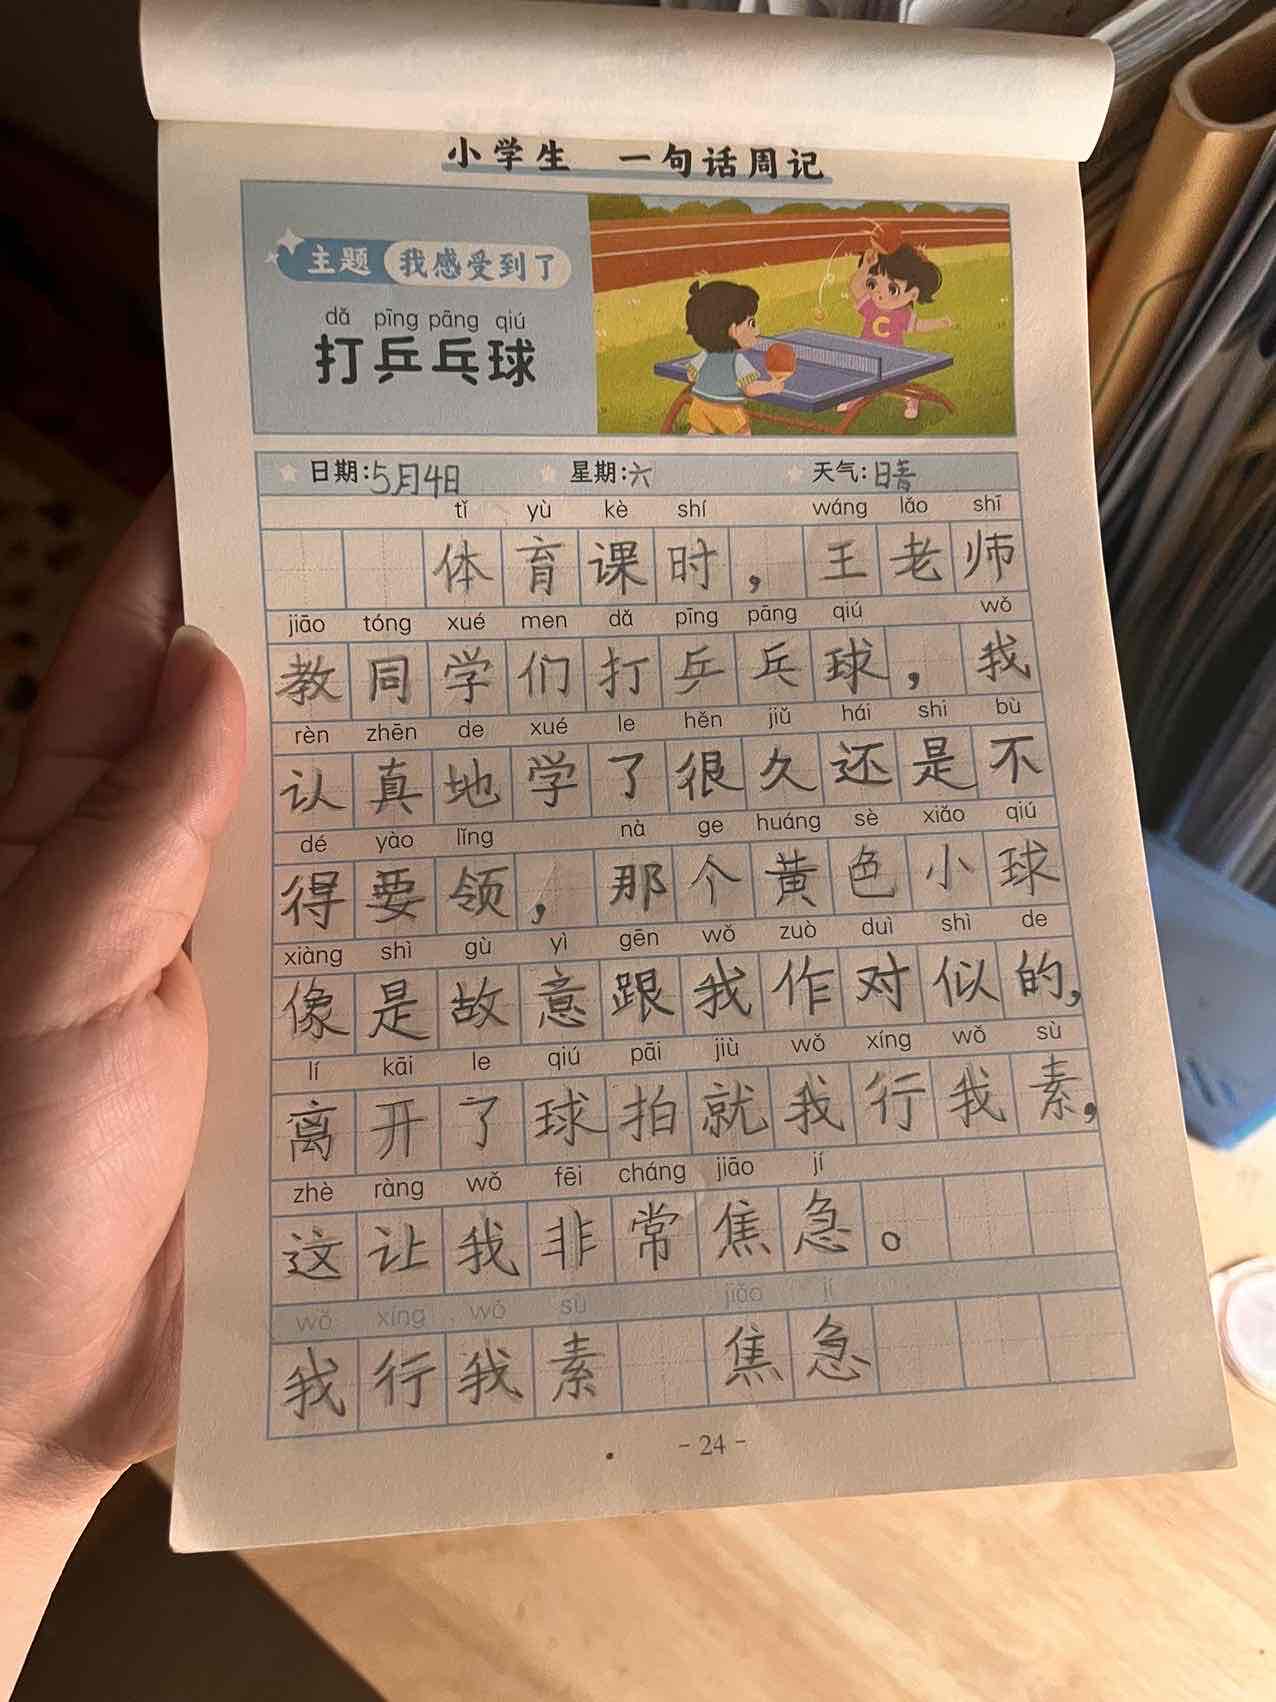 小学生 一句话周记
主题 我感受到了
dǎ pīng pāng qiú
打乒乓球
C
日期:5月4日 星期:六 天气:晴
tǐ yù kè shí wáng lǎo shī
体育课时，王老师
jiāo tóng xué men dǎ pīng pāng qiú wǒ
教同学们打乒乓球，我
rèn zhēn de xué le hěn jiǔ hái shi bù
认真地学了很久还是不
dé yào lǐng nà ge huáng sè xiǎo qiú
得要领，那个黄色小球
xiàng shì gù yì gēn wǒ zuò duì shì de
像是故意跟我作对似的，
lí kāi le qiú pāi jiù wǒ xíng wǒ sù
离开了球拍就我行我素，
zhè ràng wǒ fēi cháng jiāo jí
这让我非常焦急。
wǒ xíng wǒ sù jiāo jí
我行我素 焦急
- 24 -